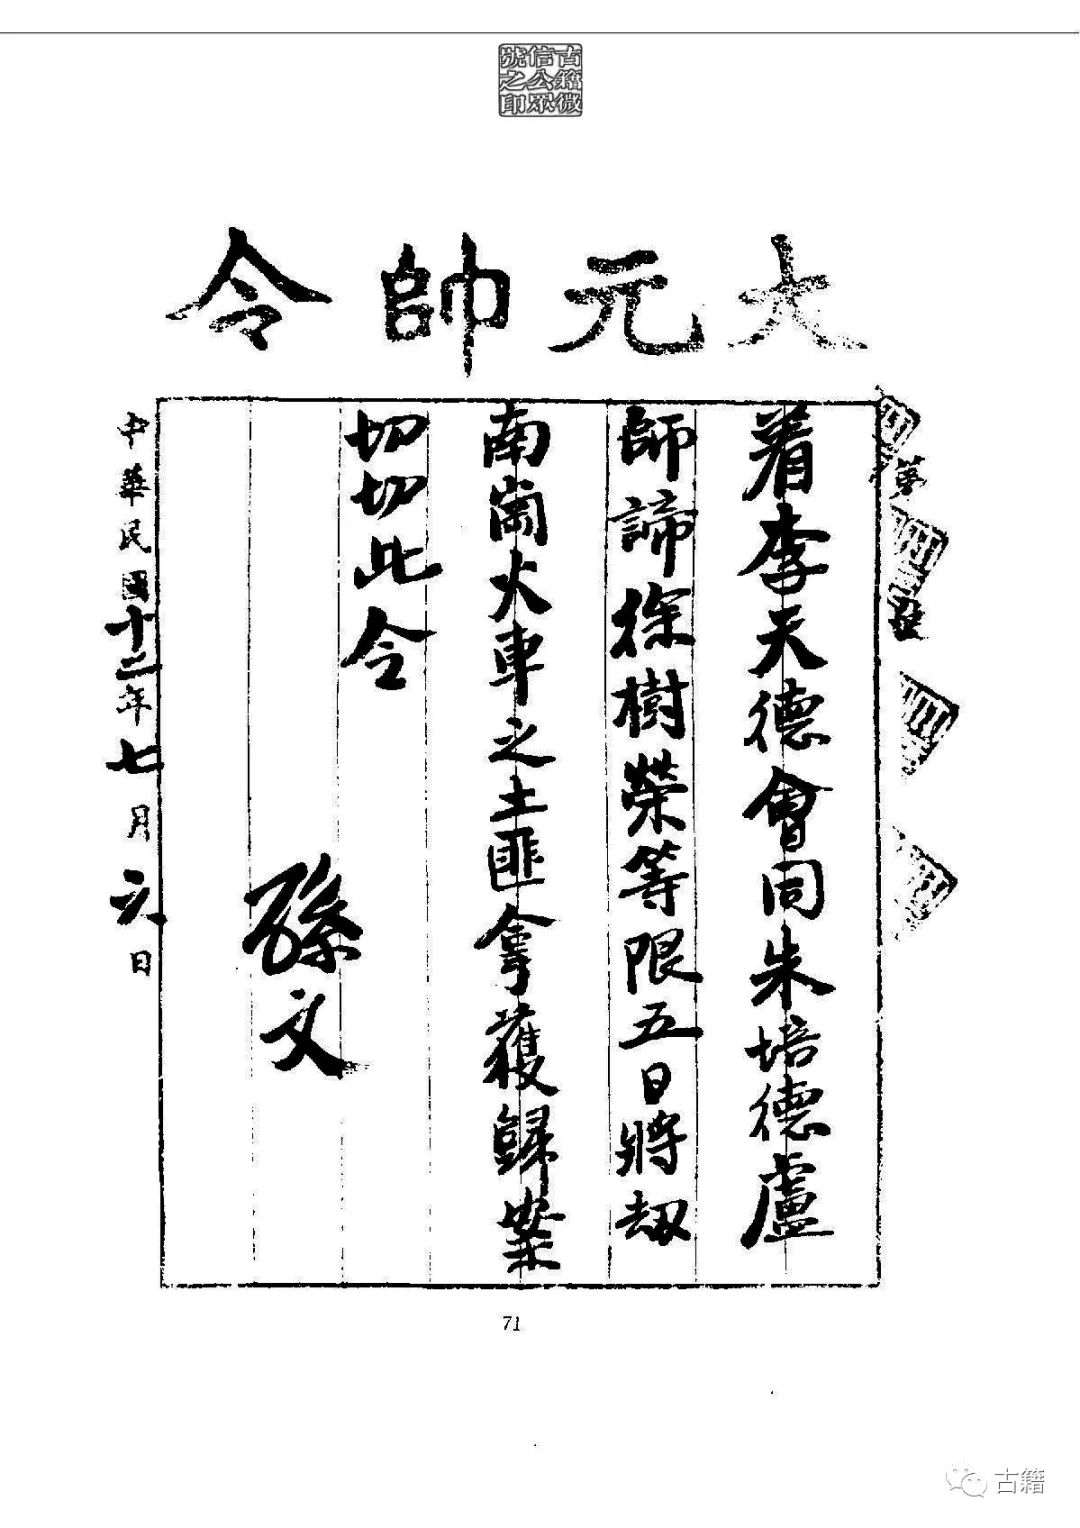 古籍微
信公眾
號之印
大元帥令
第 號
着李天德會同朱培德盧
師諦徐樹榮等限五日將劫
南崗火車之土匪拿獲歸案
切切此令
孫文
中華民國十二年七月六日
71
古籍